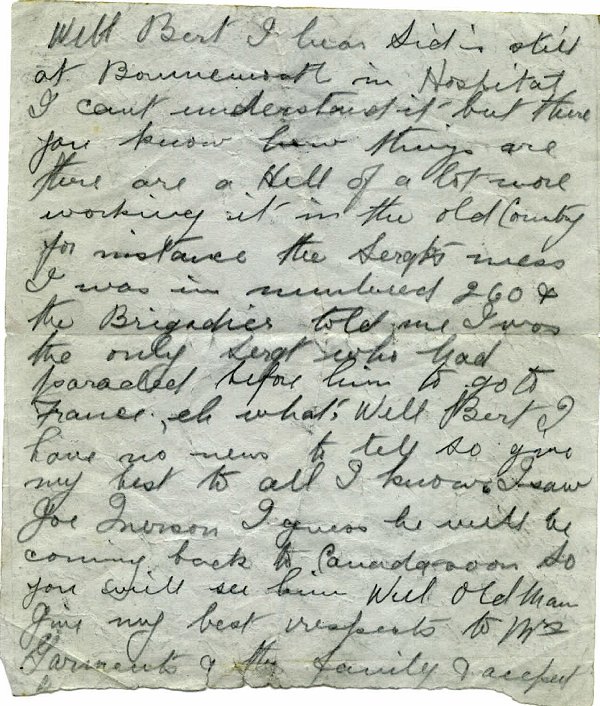 Well Bert I hear Sid is still
at Bournemouth in Hospital
I cant understand it but there
you know how things are
there are a Hell of a lot more
working it in the old Country
for instance the Sergts mess
I was in numbered 260 &
the Brigadier told me I was
the only Sergt who had
paraded before him to go to
France, eh what. Well Bert I
have no news to tell so give
my best to all I know. I saw
Joe I guess he will be
coming back to Canada soon so
you will see him Well Old Man
Give my best respects to Mrs
& the family & accept